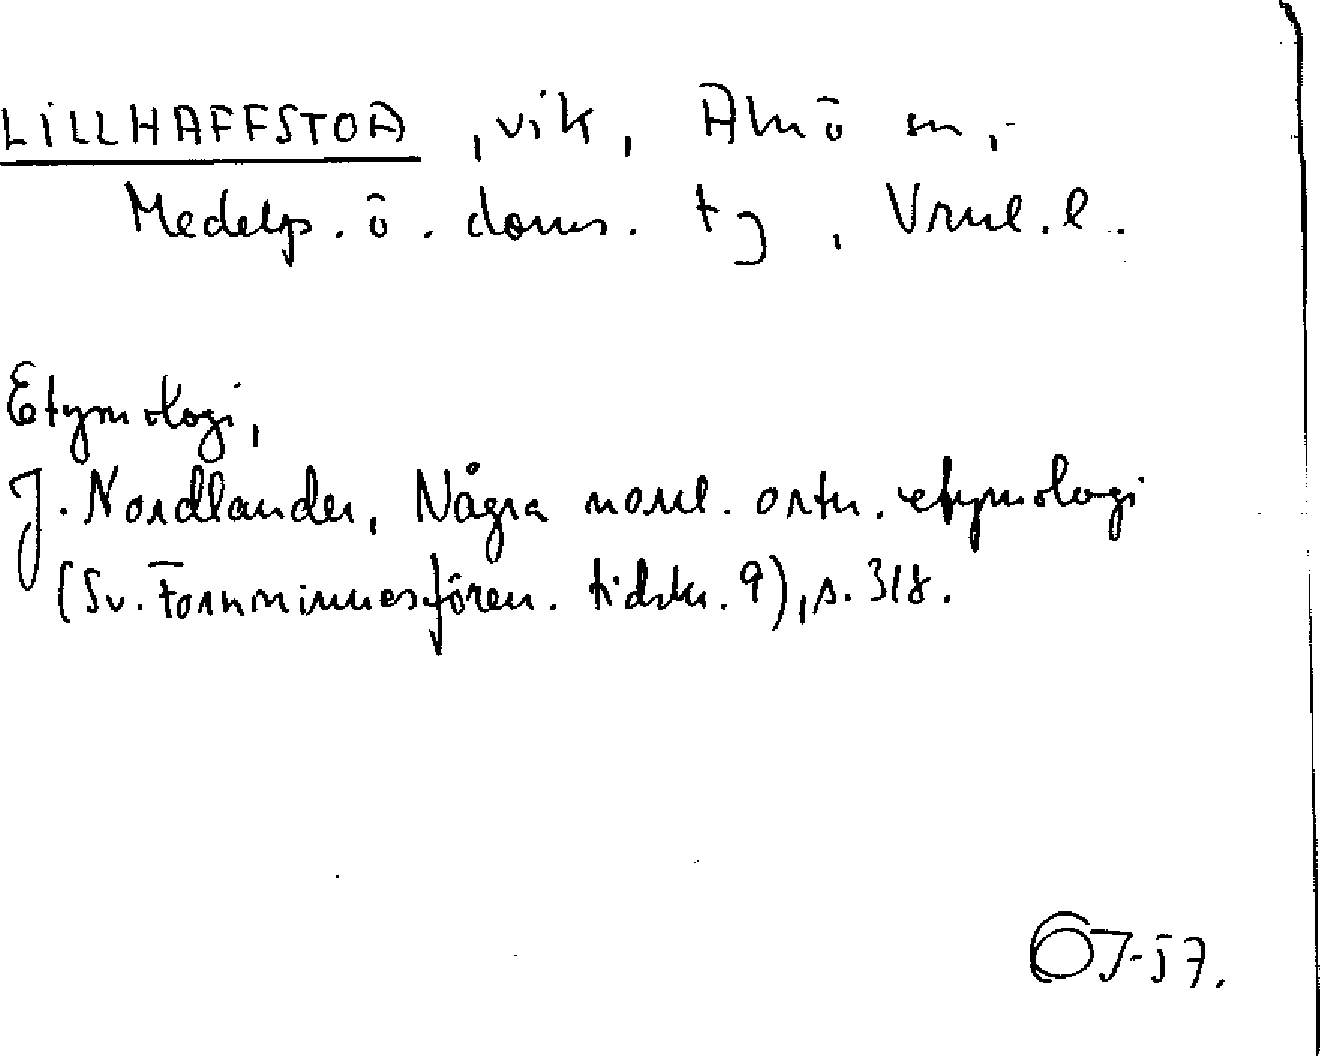 LILLHAFFSTOA, vik, Alnö sn,
Medelp. ö. doms. tg, Vrnl. l.
Etymologi,
J. Nordlander, Några norrl. ortn. etymologi
(Sv. Fornminnesfören. tidskr. 9), s. 318.
OJ-57.